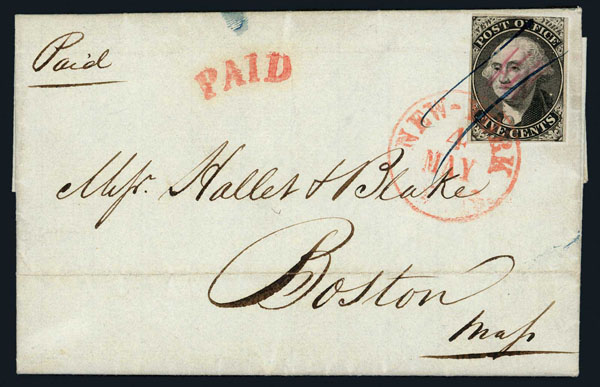 Paid
PAID
POST OFFICE
FIVE CENTS
NEW-YORK
4
MAY
Messrs. Hallet & Blake
Boston
Mass